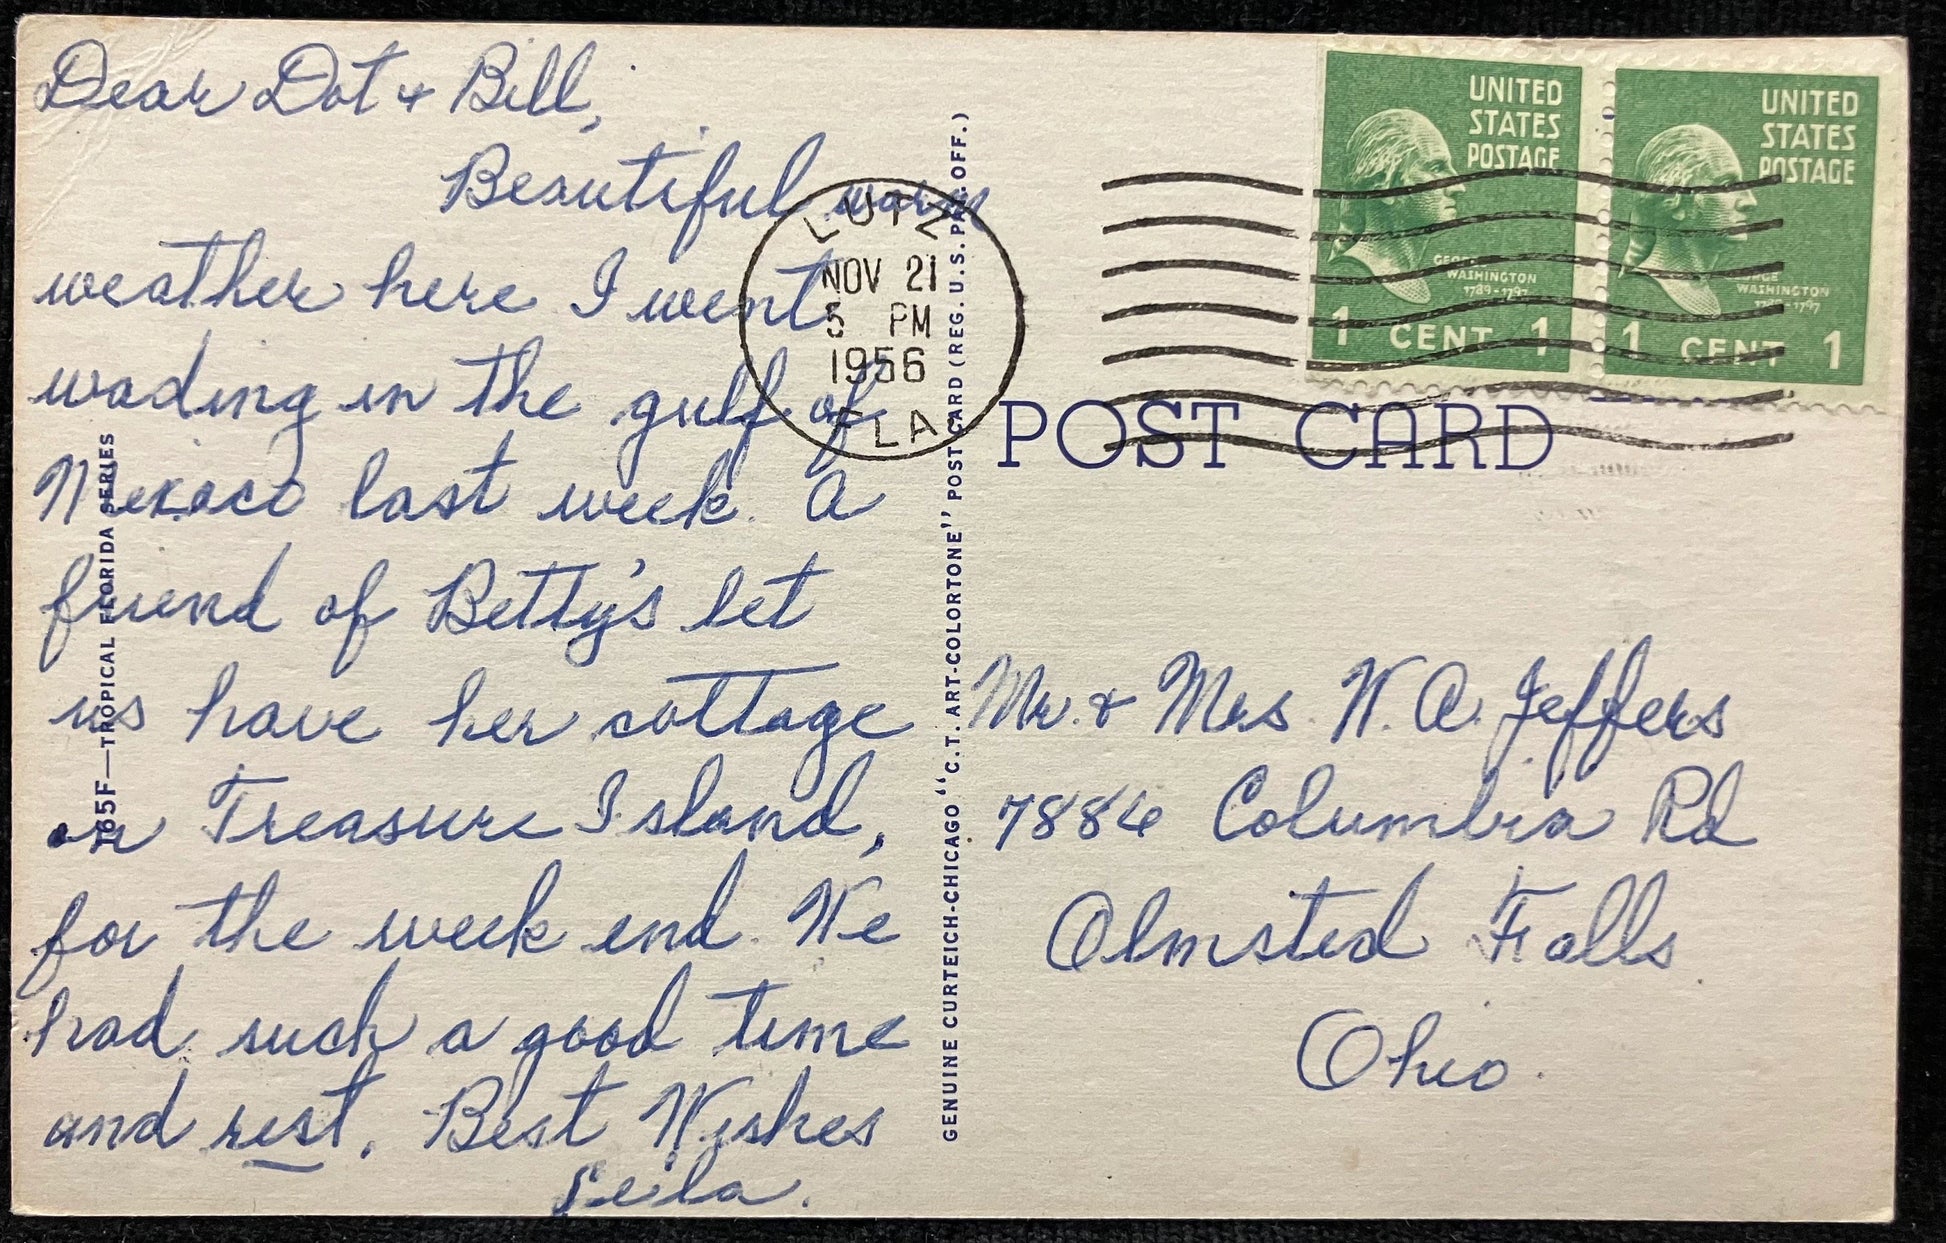 Dear Dot + Bill,
Beautiful warm
weather here I went
wading in the gulf of
Mexico last week. A
friend of Betty's let
us have her cottage
on Treasure Island,
for the week end. We
had such a good time
and rest. Best Wishes
Leila.
165F—TROPICAL FLORIDA SERIES
GENUINE CURTEICH-CHICAGO "C.T. ART-COLORTONE" POST CARD (REG. U.S. PAT. OFF.)
LUTZ
NOV 21
5 PM
1956
FLA
UNITED
STATES
POSTAGE
GEORGE
WASHINGTON
1789-1797
1 CENT 1
UNITED
STATES
POSTAGE
GEORGE
WASHINGTON
1789-1797
1 CENT 1
POST CARD
Mr. & Mrs. W. A. Jeffers
7886 Columbia Rd
Olmsted Falls
Ohio.